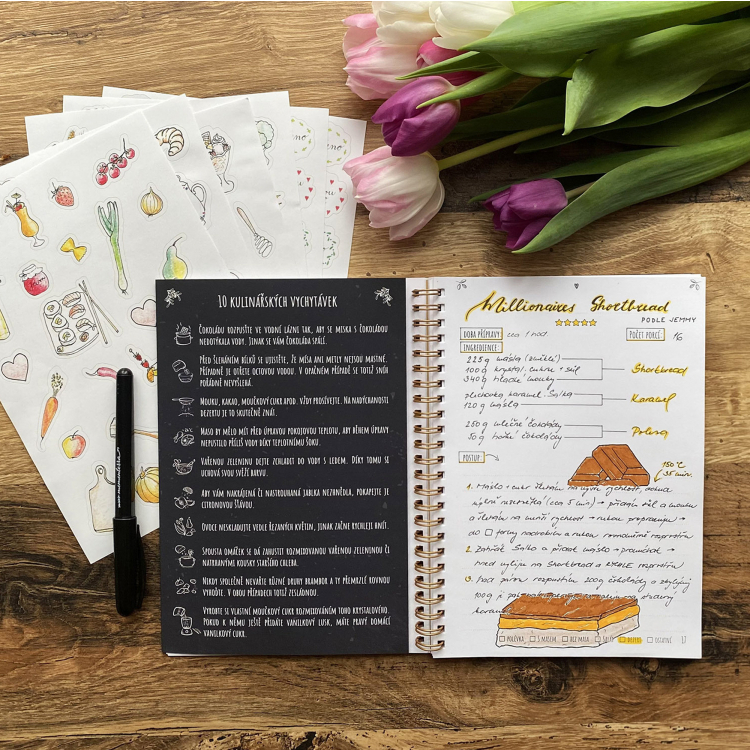 10 KULINÁŘSKÝCH VYCHYTÁVEK
ČOKOLÁDU ROZPUSŤTE VE VODNÍ LÁZNI TAK, ABY SE MISKA S ČOKOLÁDOU
NEDOTÝKALA VODY. JINAK SE VÁM ČOKOLÁDA SPÁLÍ.
PŘED ŠLEHÁNÍM BÍLKŮ SE UJISTĚTE, ŽE MÍSA ANI METLY NEJSOU MASTNÉ.
PŘÍPADNĚ JE OTŘETE OCTOVOU VODOU. V OPAČNÉM PŘÍPADĚ SE TOTIŽ SNÍH
POŘÁDNĚ NEVYŠLEHÁ.
MOUKU, KAKAO, MOUČKOVÝ CUKR APOD. VŽDY PROSÍVEJTE. NA NADÝCHANOSTI
DEZERTU JE TO SKUTEČNĚ ZNÁT.
MASO BY MĚLO MÍT PŘED ÚPRAVOU POKOJOVOU TEPLOTU, ABY BĚHEM ÚPRAVY
NEPUSTILO PŘÍLIŠ VODY DÍKY TEPLOTNÍMU ŠOKU.
VAŘENOU ZELENINU DEJTE ZCHLADIT DO VODY S LEDEM. DÍKY TOMU SI
UCHOVÁ SVOU SVĚŽÍ BARVU.
ABY VÁM NAKRÁJENÁ ČI NASTROUHANÁ JABLKA NEZHNĚDLA, POKAPEJTE JE
CITRONOVOU ŠŤÁVOU.
OVOCE NESKLADUJTE VEDLE ŘEZANÝCH KVĚTIN, JINAK ZAČNE RYCHLEJI HNÍT.
SPOUSTA OMÁČEK SE DÁ ZAHUSTIT ROZMIXOVANOU VAŘENOU ZELENINOU ČI
NATRHANÝMI KOUSKY STARŠÍHO CHLEBA.
NIKDY SPOLEČNĚ NEVAŘTE RŮZNÉ DRUHY BRAMBOR A TY PŘEMRZLÉ ROVNOU
VYHOĎTE. V OBOU PŘÍPADECH TOTIŽ ZESLÁDNOU.
VYROBTE SI VLASTNÍ MOUČKOVÝ CUKR ROZMIXOVÁNÍM TOHO KRYSTALOVÉHO.
POKUD K NĚMU JEŠTĚ PŘIDÁTE VANILKOVÝ LUSK, MÁTE PRAVÝ DOMÁCÍ
VANILKOVÝ CUKR.
Millionaires Shortbread
PODLE JEMMY
DOBA PŘÍPRAVY: cca 1 hod
POČET PORCÍ: 16
INGREDIENCE:
225g másla (změklé)
100g krystal. cukru + sůl
340g hladké mouky
Shortbread
plechovka karamel. Salka
120g másla
Karamel
250g mléčné čokolády
50g hořké čokolády
Poleva
POSTUP
150°C
35 min.
1. Máslo + cukr šlehám na vyšší rychlost, dokud
(cca 5 min) → přidám sůl a mouku
a šlehám na menší rychlost →
do formy
2. Zahřát Salko a přidat máslo → promíchat →
hned vyliju na Shortbread a
3. Nad párou rozpustím 200g čokolády a zbylých
100g je
karamel
POLÉVKA S MASEM BEZ MASA DEZERT OSTATNÍ 17